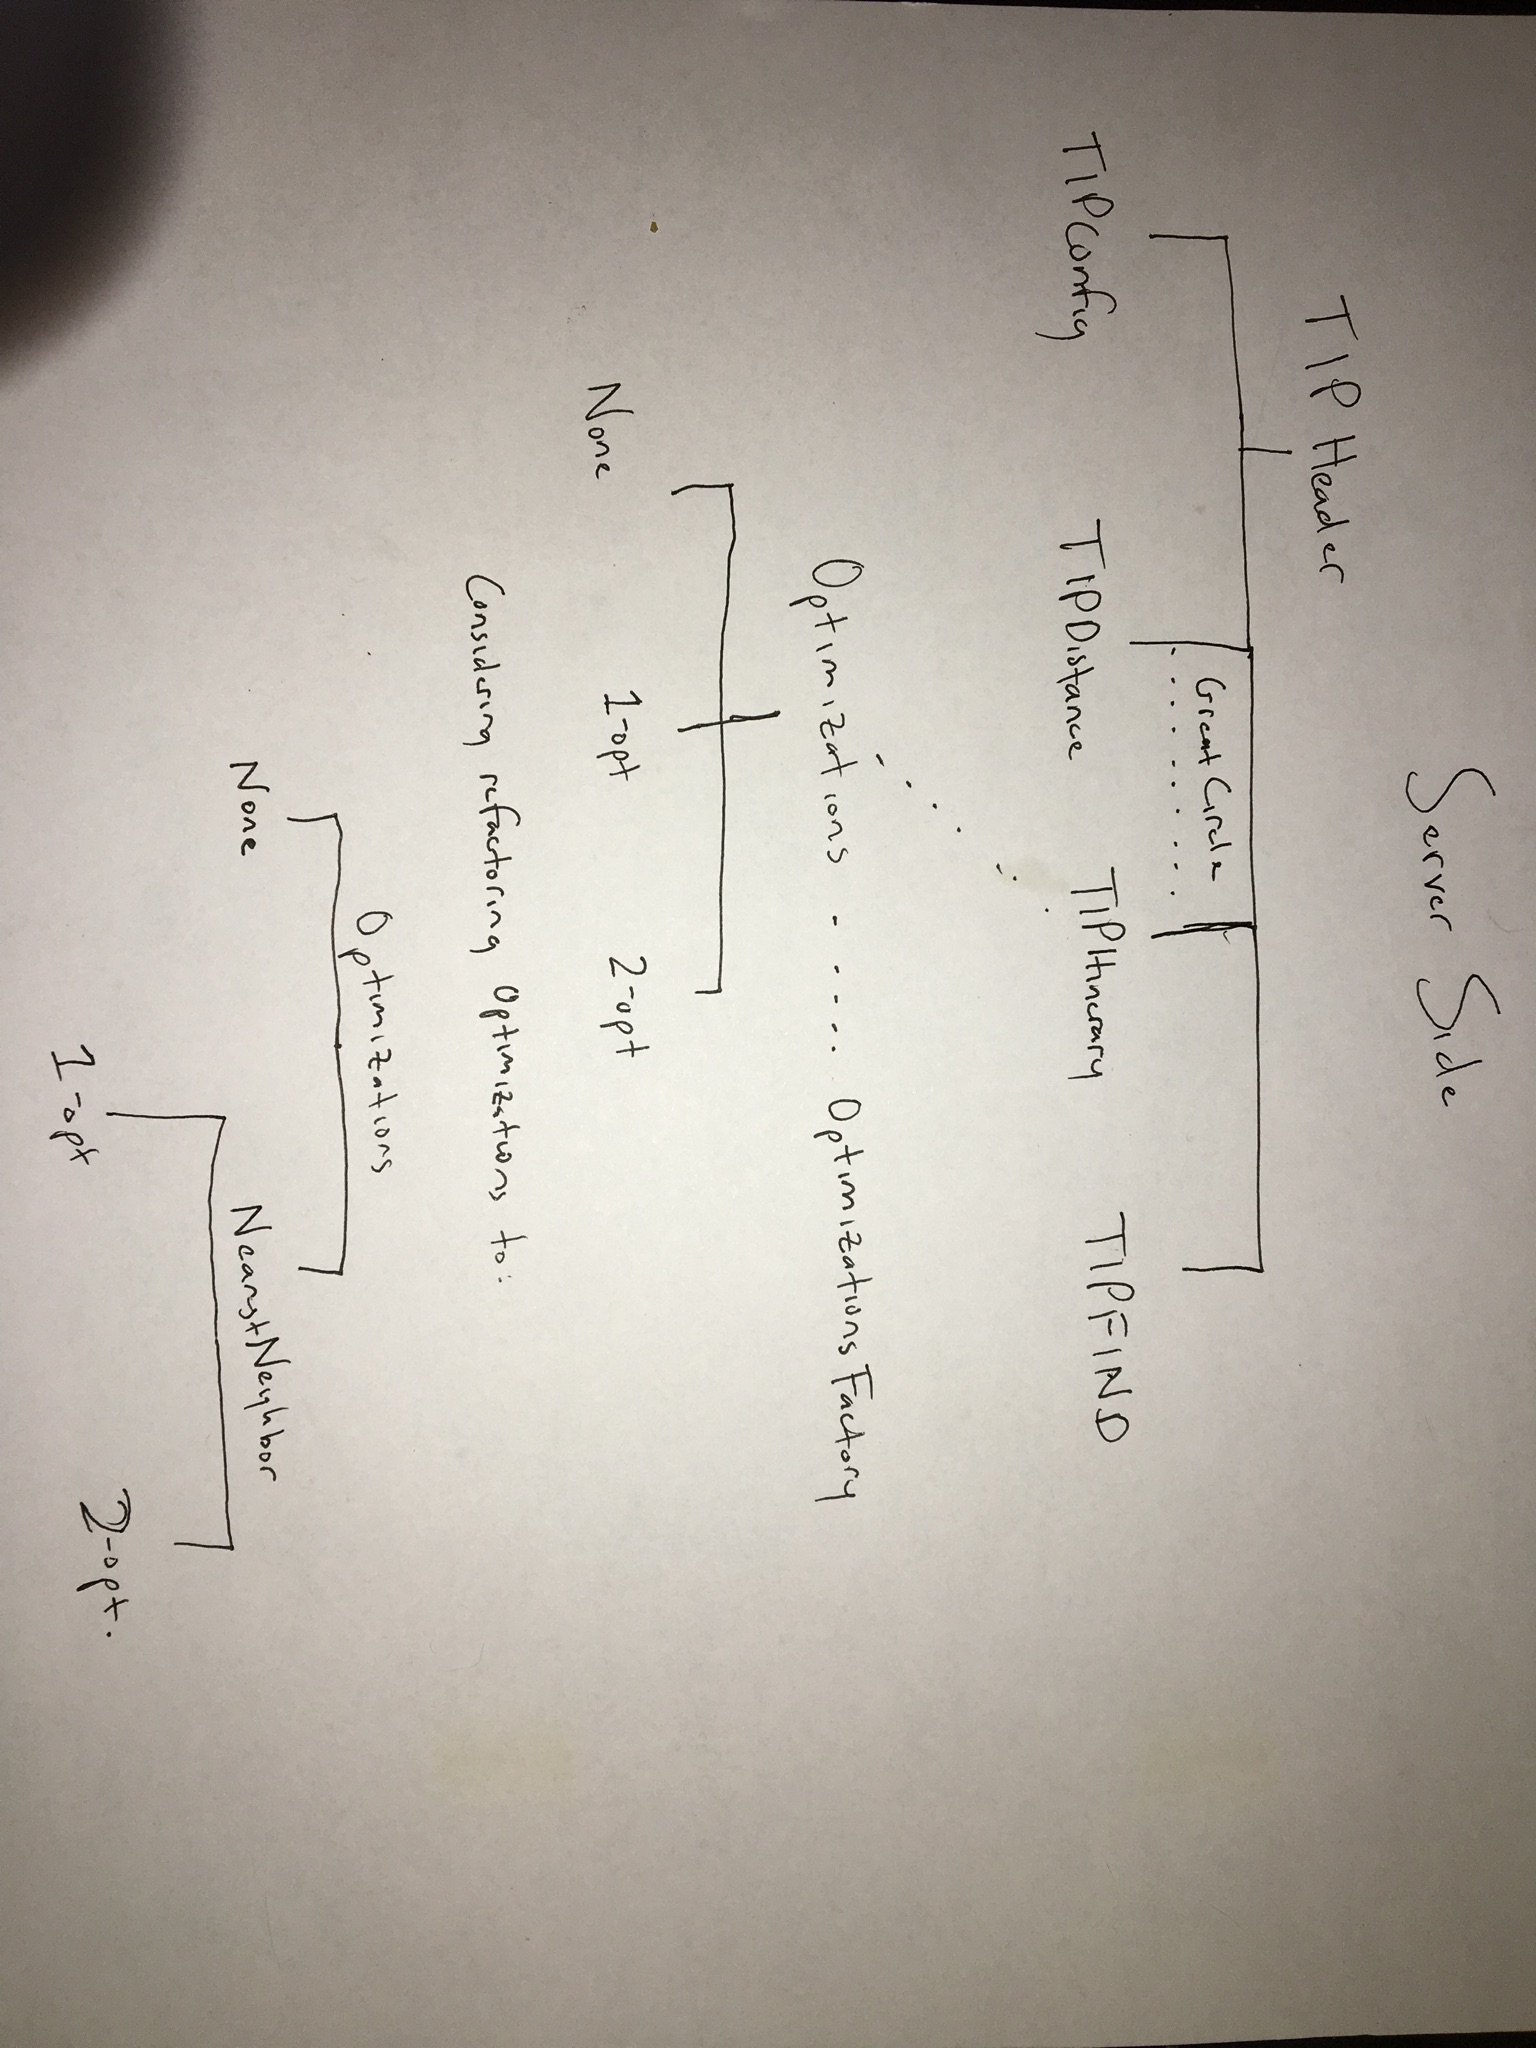 Server Side
TIP Header
GreatCircle
TIPConfig TIPDistance TIPItinerary TIPFIND
Optimizations OptimizationsFactory
None 1-opt 2-opt
Considering refactoring Optimizations to:
Optimizations
None NearestNeighbor
1-opt 2-opt.